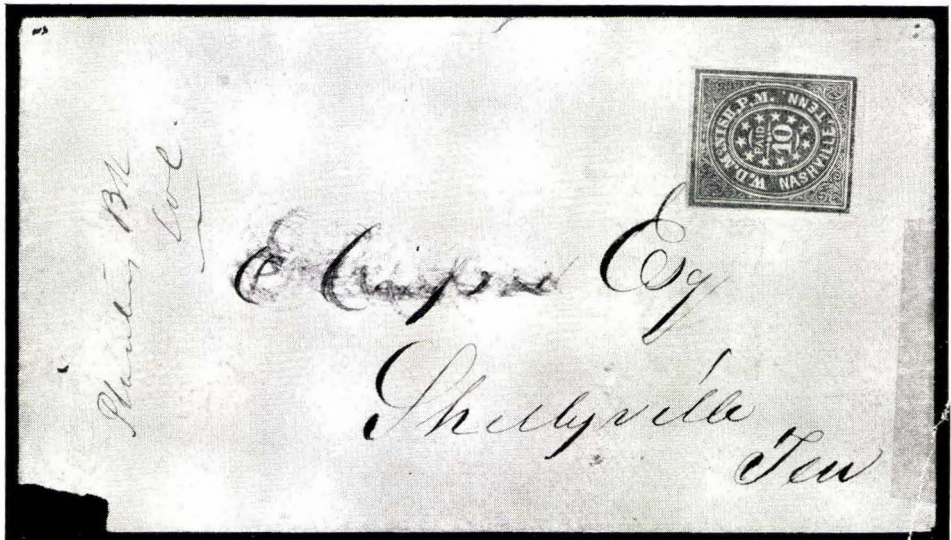 W.D. McNISH. P.M.
NASHVILLE TENN
PAID
10
Planters Bk
E Esq
Shelbyville
Ten